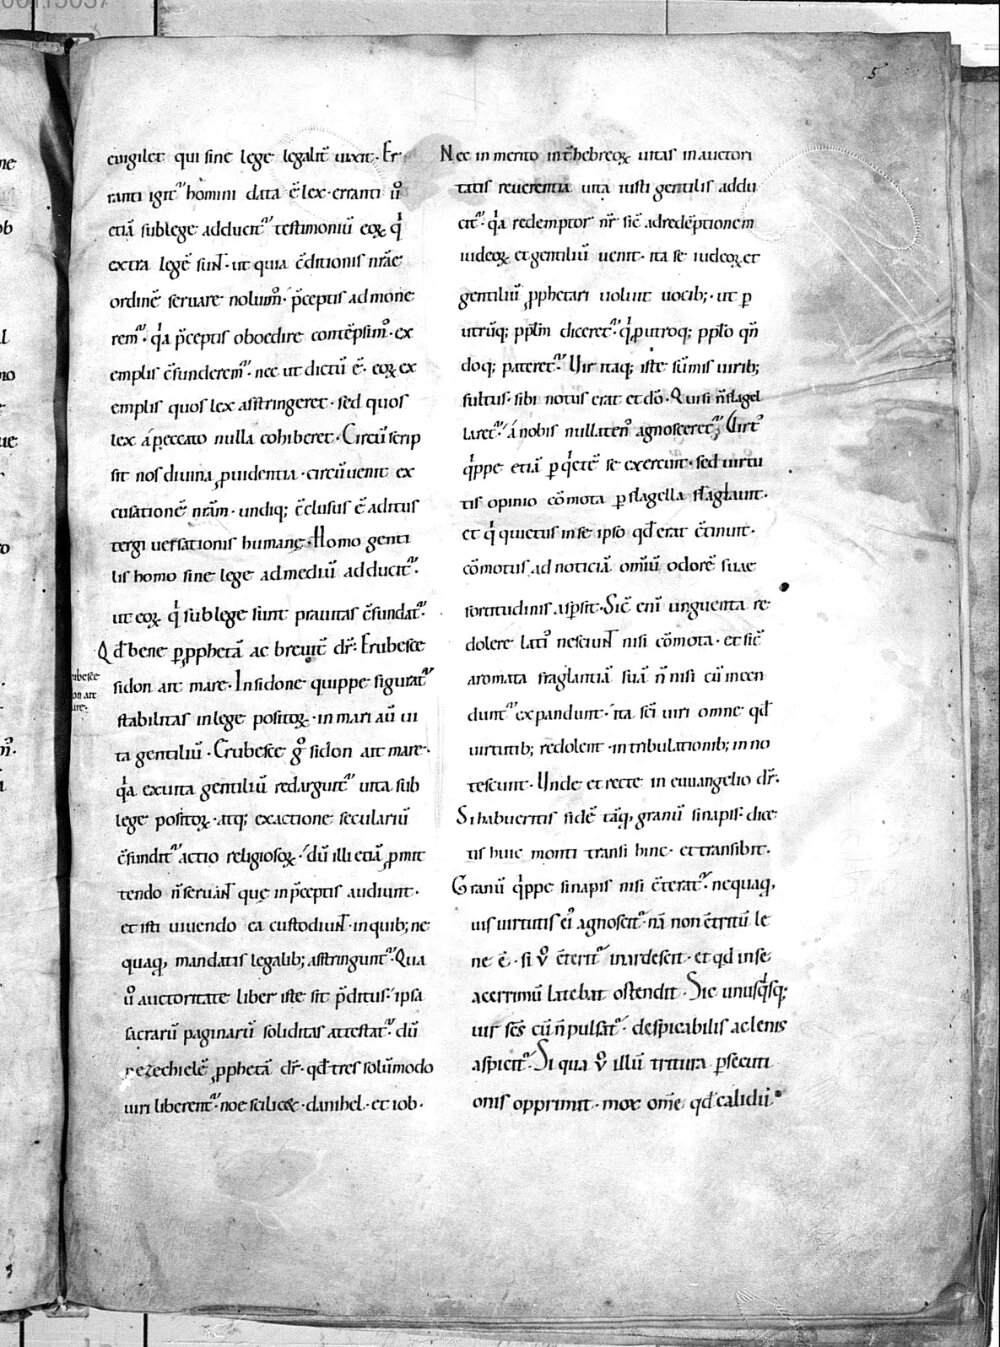 5
euigilet qui sine lege legalit̄ uixit. Er
ranti igit᷑ homini data ē lex. erranti u̾
etiā sub lege adducit᷑ testimoniū eoꝝ qͥ
extra legē sunt. ut quia c̄ditionis nr̄ae
ordinē seruare noluim᷒. p̄ceptis admone
rem᷑. qͥa p̄ceptis oboedire contēpsim᷒. ex
emplis c̄funderem᷑. nec ut dictū ē. eoꝝ ex
emplis quos lex astringeret. sed quos
lex a peccato nulla cohiberet. Circūscrip
sit nos diuina ꝓuidentia. circūuenit ex
cusationē nr̄am. undiq; c̄clusus ē aditus
tergiuersationis humanę. Homo genti
lis homo sine lege ad mediū adducit᷑.
ut eoꝝ qͥ sub lege sunt prauitas c̄fundat᷑.
Qd̄ bene ꝑ ꝓphetā ac breuit̄ dr̄. Erubesce
sidon ait mare. In sidone quippe figurat᷑
stabilitas in lege positoꝝ. in mari aū ui
ta gentiliū. Erubesce gͦ sidon ait mare.
qͥa ex uita gentiliū redarguit᷑ uita sub
lege positoꝝ. atq; ex actione seculariū
c̄fundit᷑ actio religiosoꝝ. dū illi etiā ꝓmit
tendo n̄ seruant que in p̄ceptis audiunt.
et isti uiuendo ea custodiunt. in quib; ne
quaq, mandatis legalib; astringunt᷑. Qua
u̾ auctoritate liber iste sit p̄ditus. ipsa
sacrarū paginarū soliditas attestat᷑. dū
ezechielē ꝓphetā dr̄. qd̄ tres solūmodo
uiri liberent᷑. noe scilic&. danihel. et iob.
ubesce
on ait
are.
Nec inmerito int̄ hebreoꝝ uitas in auctori
tatis reuerentia uita iusti gentilis addu
cit᷑. qͥa redemptor nr̄ sic̄ ad redēptionem
iudeoꝝ et gentiliū uenit. ita se iudeoꝝ et
gentiliū ꝓphetari uoluit uocib;. ut ꝑ
utrūq; pplm̄ diceret᷑. qͥ ꝓ utroq; pplo qn̄
doq; pateret᷑. Uir itaq; iste sūmis uirib;
fultus. sibi notus erat et dō. Qui si n̄ flagel
laret᷑. a nobis nullaten᷒ agnosceret᷑. Uirt᷒
qͥppe etiā ꝑ qͥetē se exercuit. sed uirtu
tis opinio cōmota ꝑ flagella flaglauit.
et qͥ quietus in se ipso qd̄ erat c̄tinuit.
cōmotus ad noticiā omīu odorē suae
fortitudinis aspsit. Sic̄ enī unguenta re
dolere lati᷒ nesciunt nisi cōmota. et sic̄
aromata fraglantiā suā n̄ nisi cū incen
dunt᷑ expandunt. ita sc̄i uiri omne qd̄
uirtutib; redolent. in tribulationib; inno
tescunt. Unde et recte in euuangelio dr̄.
Si habueritis fidē tāq, granū sinapis. dice
tis huic monti transi hinc. et transibit.
Granū qͥppe sinapis nisi c̄terat᷑. nequaq,
uis uirtutis ei᷒ agnoscit᷑. nā non c̄tritū le
ne ē. si u̾ c̄terit᷑ inardescit. et qd̄ in se
acerrimū latebat ostendit. Sic unusqͥsq;
uir scs̄ cū n̄ pulsat᷑. despicabilis ac lenis
aspicit᷑. Si qua u̾ illū tritura ꝑsecuti
onis opprimit. mox om̄e qd̄ calidū